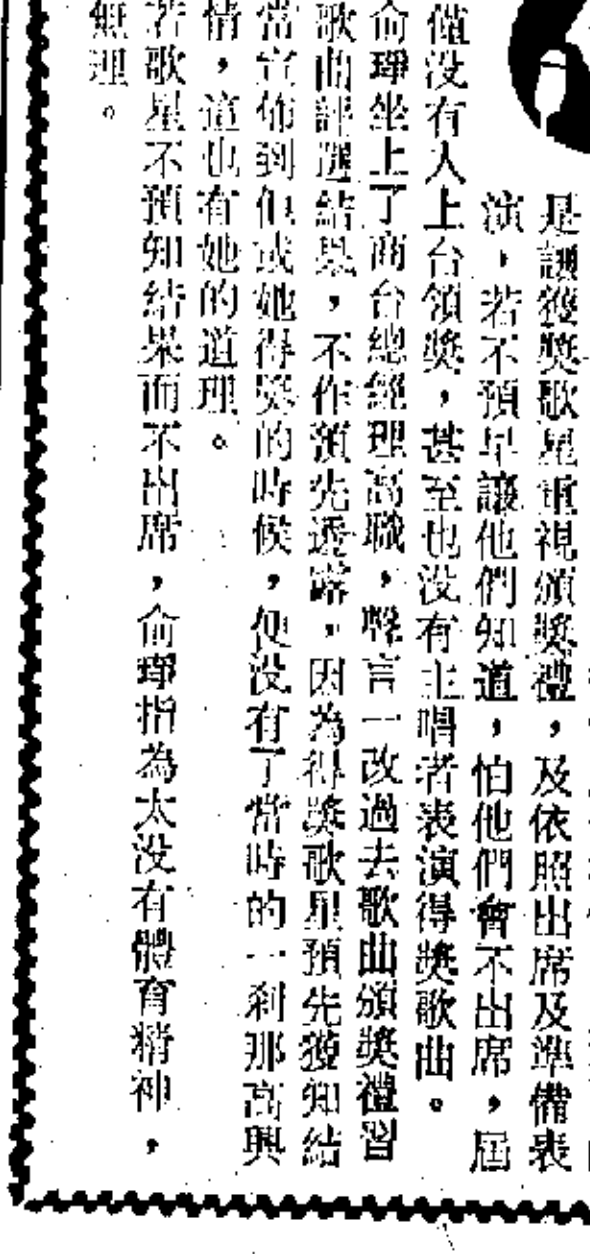 是讓獲獎歌星重視頒獎禮，及依照出席及準備表
演，若不預早讓他們知道，怕他們會不出席，屆
僅没有人上台領獎，甚至也没有主唱者表演得獎歌曲。
俞琤坐上了商台總經理高職，聲言一改過去歌曲頒獎禮習
歌曲評選結果，不作預先透露，因為得獎歌星預先獲知結
當宣佈到他或她得獎的時候，便没有了當時的一剎那高興
情，這也有她的道理。
若歌星不預知結果而不出席，俞琤指為太没有體育精神，
無理。